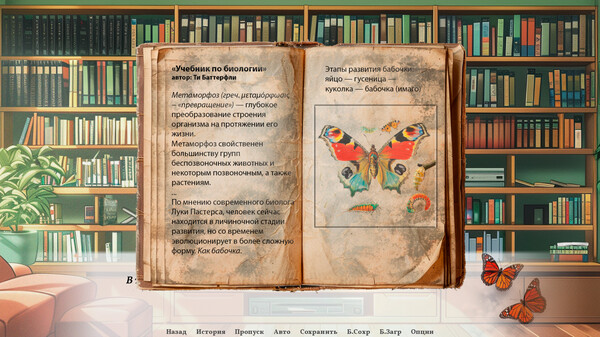 «Учебник по биологии»
автор: Ти Баттерфли
Метаморфоз (греч. μεταμόρφωσις,
– «превращение») — глубокое
преобразование строения
организма на протяжении его
жизни.
Метаморфоз свойственен
большинству групп
беспозвоночных животных и
некоторым позвоночным, а также
растениям.
...
По мнению современного биолога
Луки Пастерса, человек сейчас
находится в личиночной стадии
развития, но со временем
эволюционирует в более сложную
форму. Как бабочка.
Этапы развития бабочки:
яйцо — гусеница —
куколка — бабочка (имаго)
В
Назад История Пропуск Авто Сохранить Б.Сохр Б.Загр Опции